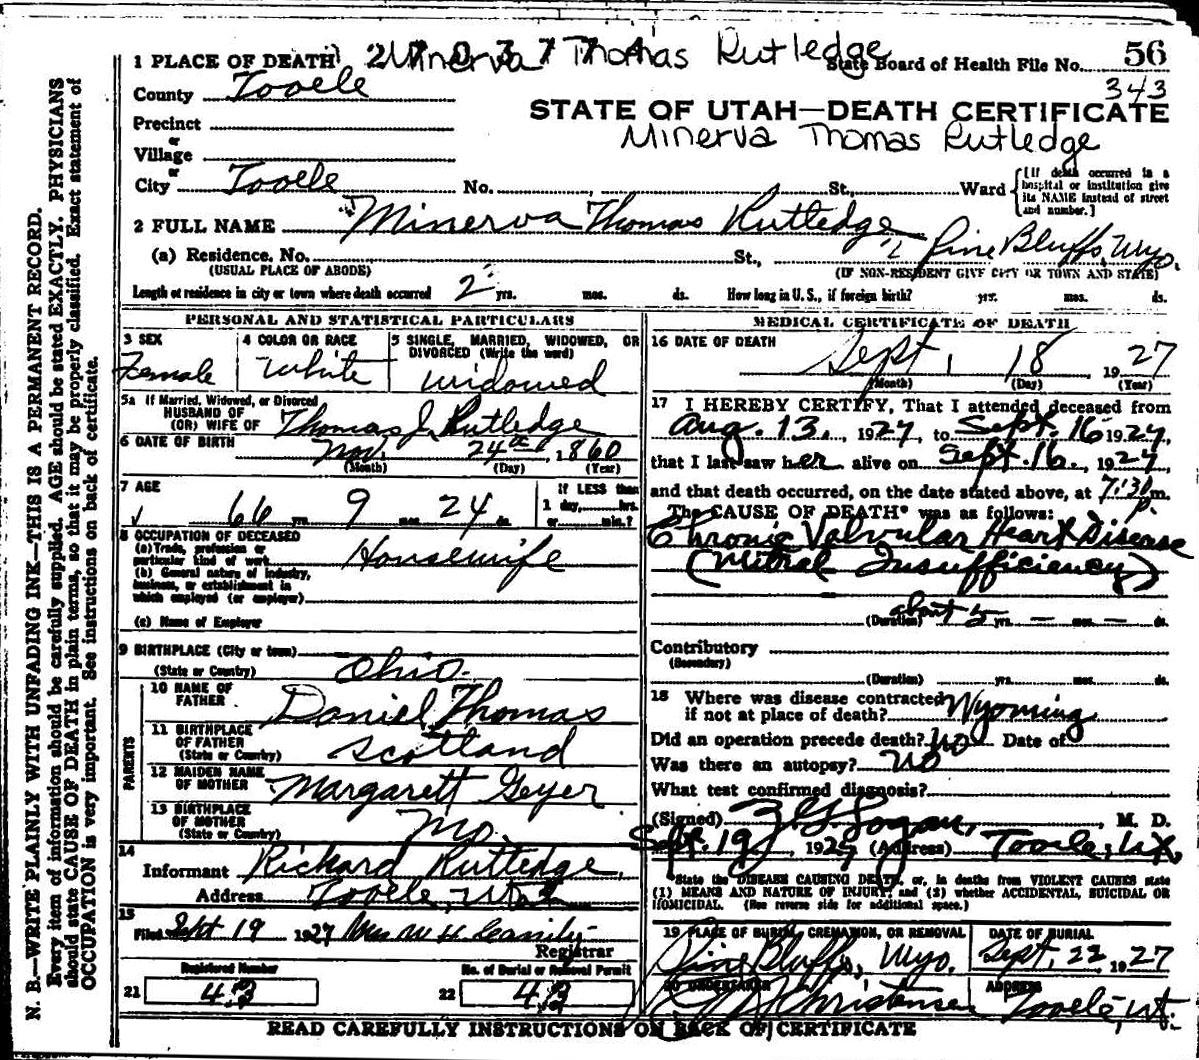 1 PLACE OF DEATH Minerva Thomas Rutledge State Board of Health File No. 56
County Tooele 343
STATE OF UTAH—DEATH CERTIFICATE
Precinct
Minerva Thomas Rutledge
or
Village
or
City Tooele No. St., Ward
[If death occurred in a hospital or institution give its NAME instead of street and number.]
2 FULL NAME Minerva Thomas Rutledge
(a) Residence. No. St., Pine Bluffs, Wyo.
(USUAL PLACE OF ABODE) (IF NON-RESIDENT GIVE CITY OR TOWN AND STATE)
Length of residence in city or town where death occurred 2 yrs. mos. ds. How long in U. S., if foreign birth? yrs. mos. ds.
PERSONAL AND STATISTICAL PARTICULARS
3 SEX
Female
4 COLOR OR RACE
White
5 SINGLE, MARRIED, WIDOWED, OR
DIVORCED (Write the word)
widowed
5a If Married, Widowed, or Divorced
HUSBAND OF
(OR) WIFE OF Thomas J. Rutledge
6 DATE OF BIRTH Nov. 24th, 1860
(Month) (Day) (Year)
7 AGE
66 yrs. 9 mos. 24 ds.
If LESS than
1 day, hrs.
or min.?
8 OCCUPATION OF DECEASED
(a) Trade, profession or
particular kind of work Housewife
(b) General nature of industry,
business, or establishment in
which employed (or employer)
(c) Name of Employer
9 BIRTHPLACE (City or town)
(State or Country) Ohio.
PARENTS
10 NAME OF
FATHER Daniel Thomas
11 BIRTHPLACE
OF FATHER
(State or Country) Scotland
12 MAIDEN NAME
OF MOTHER Margarett Geyer
13 BIRTHPLACE
OF MOTHER
(State or Country) Mo.
14
Informant Richard Rutledge
Address Tooele, Utah
15
Filed Sept 19 1927 Mrs W H
Registrar
Registered Number
21 43
No. of Burial or Removal Permit
22 43
MEDICAL CERTIFICATE OF DEATH
16 DATE OF DEATH
Sept, 18 1927
(Month) (Day) (Year)
17 I HEREBY CERTIFY, That I attended deceased from
Aug. 13, 1927, to Sept. 16 1927,
that I last saw her alive on Sept. 16., 1927
and that death occurred, on the date stated above, at 7:30 p. m.
The CAUSE OF DEATH* was as follows:
Chronic Valvular Heart Disease
(Mitral Insufficiency)
about 5
(Duration) yrs. — mos. — ds.
Contributory
(Secondary)
(Duration) yrs. mos. ds.
18 Where was disease contracted
if not at place of death? Wyoming
Did an operation precede death? No Date of
Was there an autopsy? No
What test confirmed diagnosis?
(Signed) M. D.
Sept. 19, 1927 (Address) Tooele, Ut.
*State the DISEASE CAUSING DEATH, or, in deaths from VIOLENT CAUSES state
(1) MEANS AND NATURE OF INJURY; and (2) whether ACCIDENTAL, SUICIDAL OR
HOMICIDAL. (See reverse side for additional space.)
19 PLACE OF BURIAL, CREMATION, OR REMOVAL
Pine Bluffs, Wyo.
DATE OF BURIAL
Sept, 22, 1927
20 UNDERTAKER
Christensen
ADDRESS
Tooele, Ut.
READ CAREFULLY INSTRUCTIONS ON BACK OF CERTIFICATE
N. B.—WRITE PLAINLY WITH UNFADING INK—THIS IS A PERMANENT RECORD.
Every item of information should be carefully supplied. AGE should be stated EXACTLY. PHYSICIANS
should state CAUSE OF DEATH in plain terms, so that it may be properly classified. Exact statement of
OCCUPATION is very important. See instructions on back of certificate.